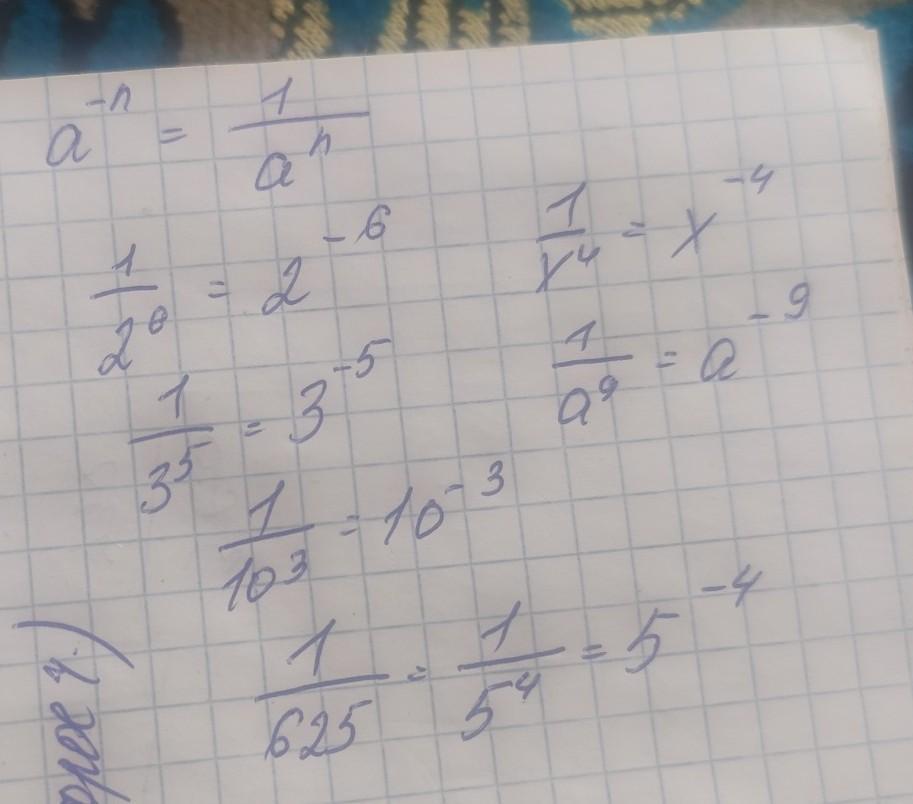 a⁻ⁿ = 1/aⁿ
1/2⁶ = 2⁻⁶
1/x⁴ = x⁻⁴
1/3⁵ = 3⁻⁵
1/a⁹ = a⁻⁹
1/10³ = 10⁻³
1/625 = 1/5⁴ = 5⁻⁴